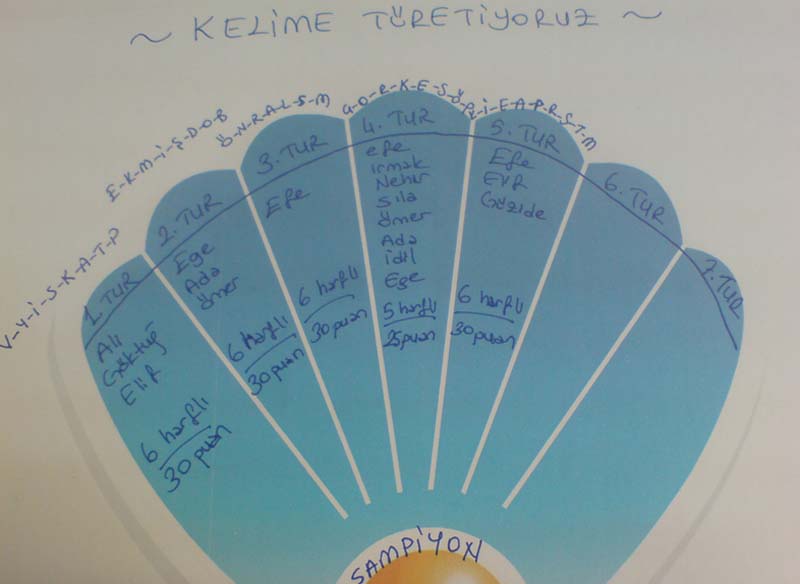 ~ KELİME TÜRETİYORUZ ~
V-Y-İ-S-K-A-T-P
1. TUR
Ali
Göktuğ
Elif
6 harfli
30 puan
E-K-M-İ-Ş-D-O-B
2. TUR
Ege
Ada
ömer
6 harfli
30 puan
Ü-N-R-A-L-S-M
3. TUR
Efe
6 harfli
30 puan
4. TUR
efe
ırmak
Nehir
Sıla
ömer
Ada
idil
Ege
5 harfli
25 puan
İ-E-A-P-R-S-T-M
5. TUR
Efe
Elif
Gözide
6 harfli
30 puan
6. TUR
7. TUR
ŞAMPİYON